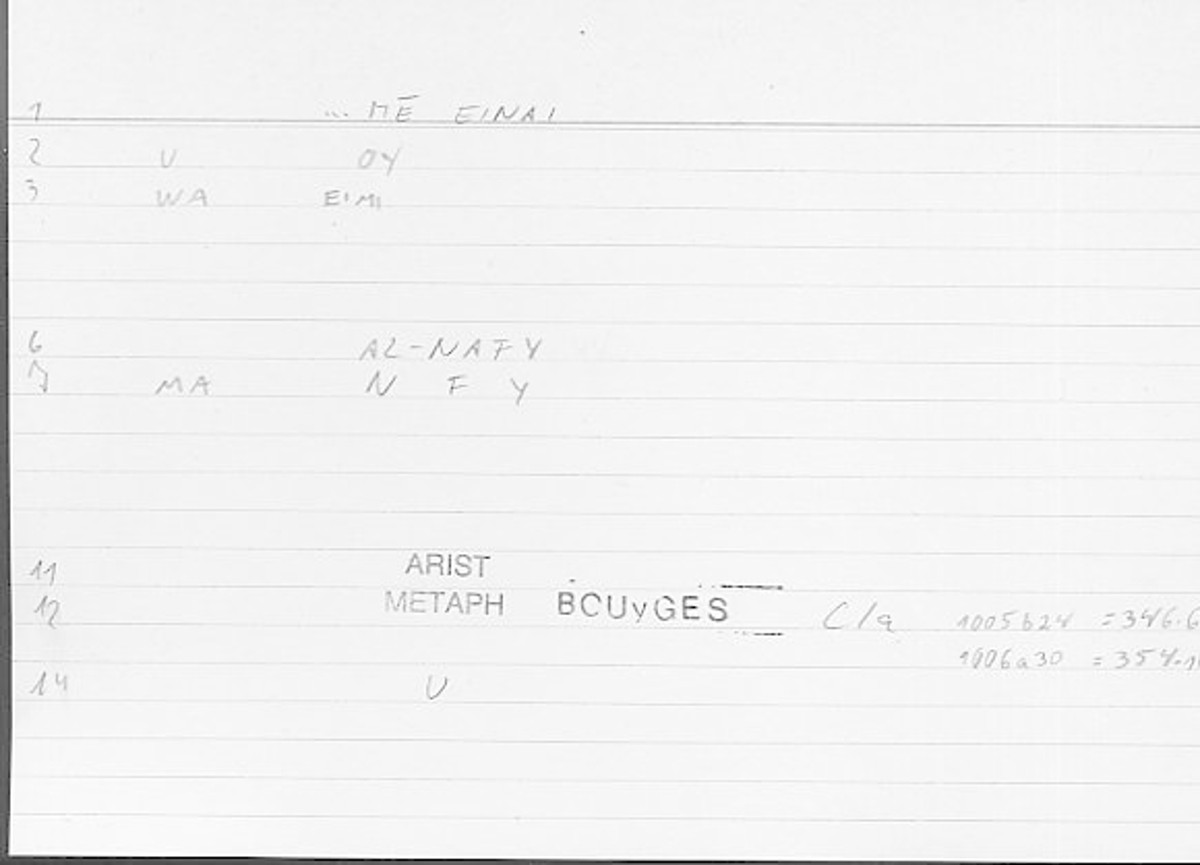 1 ... MĒ EINAI
2 U OY
3 WA EIMI
6 AL-NAFY
7 MA N F Y
11 ARIST
12 METAPH BOUyGES C/a 1005b24 =346.6
1006a30 =354.1
14 U